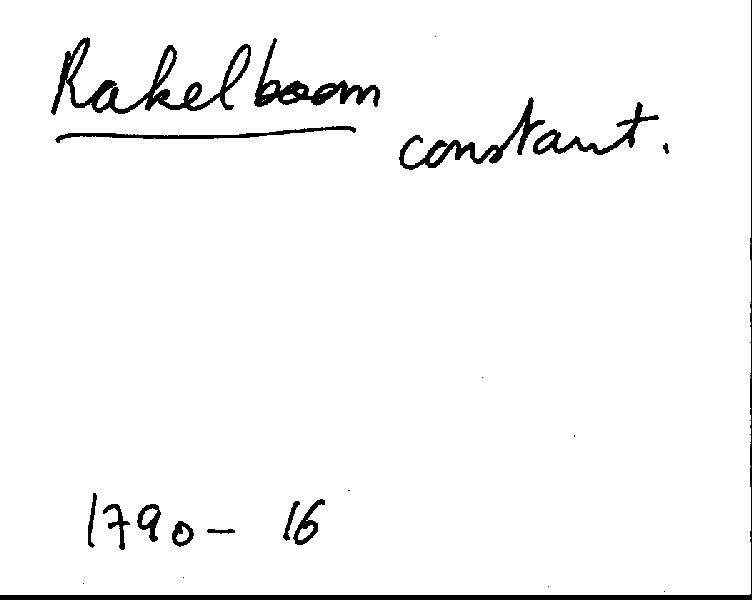 Rakelboom
constant.
1790 - 16